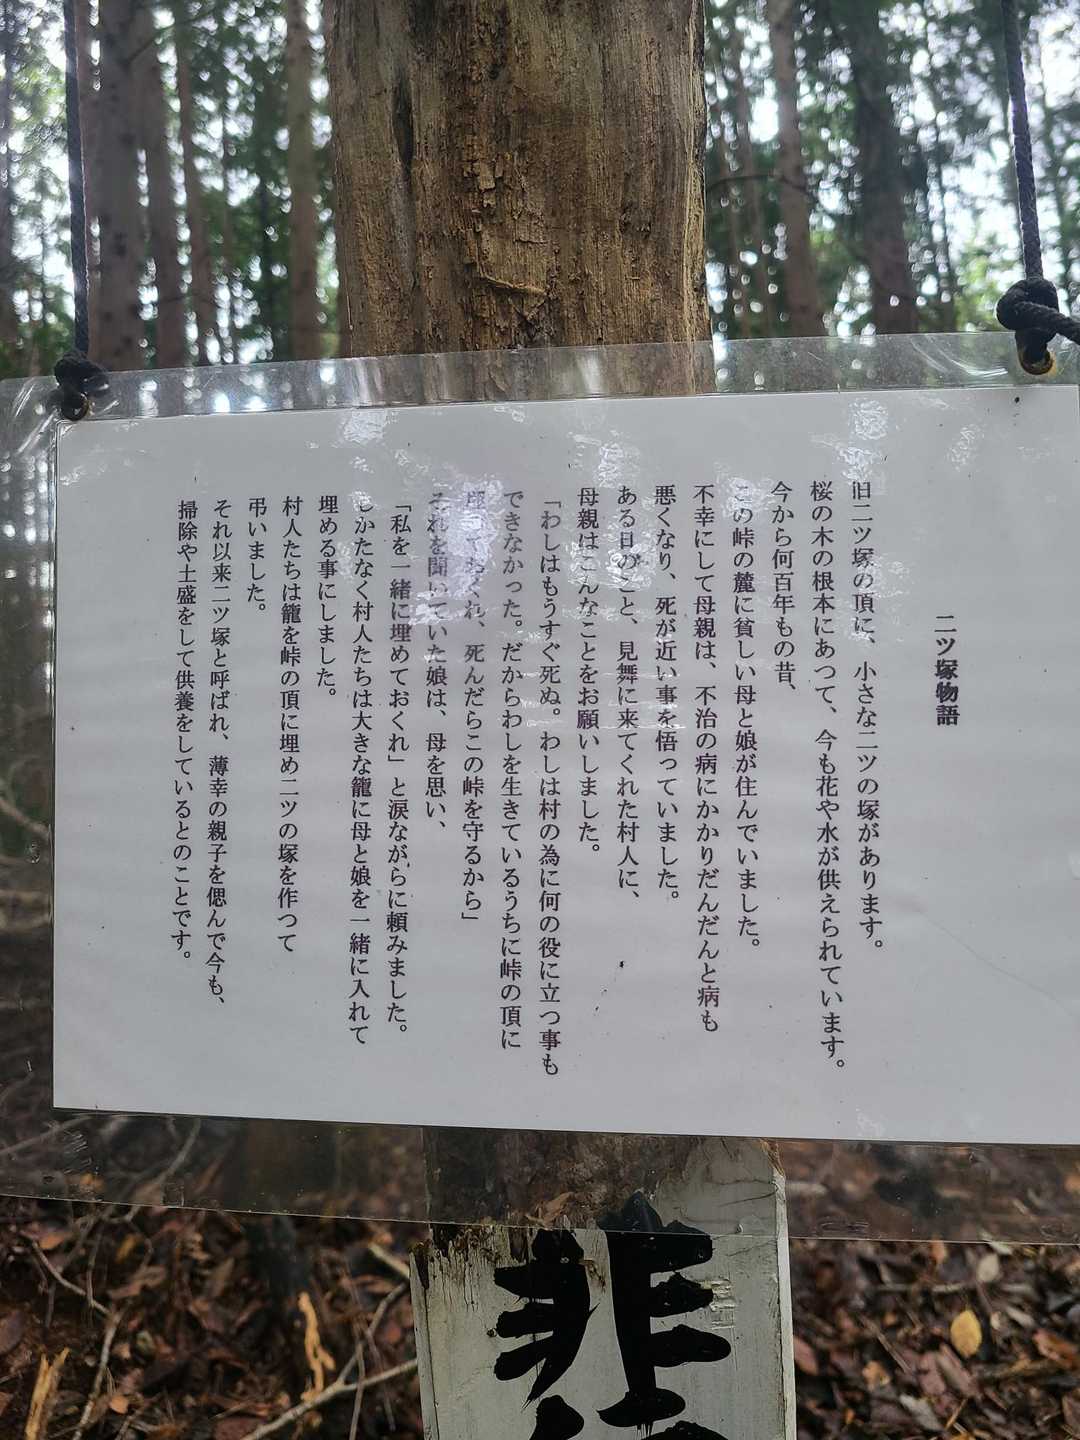 二ツ塚物語
旧二ツ塚の頂に、小さな二ツの塚があります。
桜の木の根本にあつて、今も花や水が供えられています。
今から何百年もの昔、
この峠の麓に貧しい母と娘が住んでいました。
不幸にして母親は、不治の病にかかりだんだんと病も
悪くなり、死が近い事を悟っていました。
ある日のこと、見舞に来てくれた村人に、
母親はこんなことをお願いしました。
「わしはもうすぐ死ぬ。わしは村の為に何の役に立つ事も
できなかった。だからわしを生きているうちに峠の頂に
埋めておくれ、死んだらこの峠を守るから」
それを聞いていた娘は、母を思い、
「私を一緒に埋めておくれ」と涙ながらに頼みました。
しかたなく村人たちは大きな籠に母と娘を一緒に入れて
埋める事にしました。
村人たちは籠を峠の頂に埋め二ツの塚を作つて
弔いました。
それ以来二ツ塚と呼ばれ、薄幸の親子を偲んで今も、
掃除や土盛をして供養をしているとのことです。